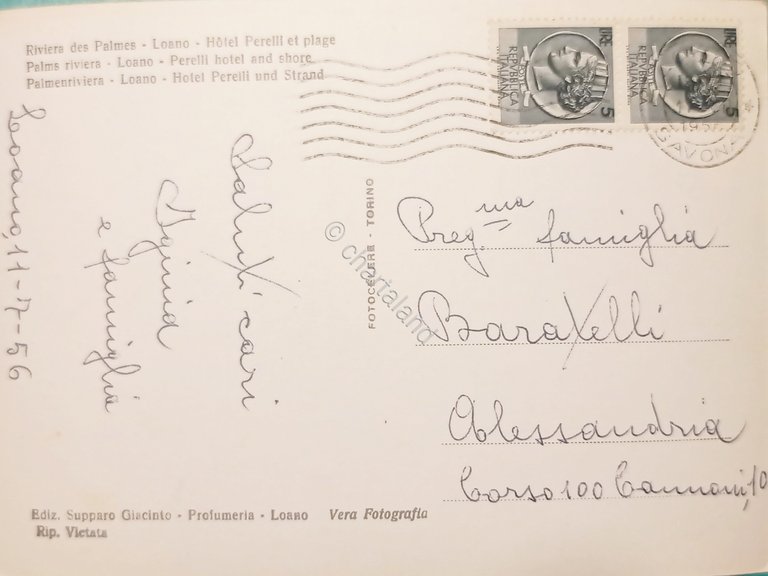 Riviera des Palmes - Loano - Hôtel Perelli et plage
Palms riviera - Loano - Perelli hotel and shore
Palmenriviera - Loano - Hotel Perelli und Strand
Loano, 11-7-56
Saluti cari
Iginia
e famiglia
Ediz. Supparo Giacinto - Profumeria - Loano Vera Fotografia
Rip. Vietata
FOTOCELERE - TORINO
© chartaland
LIRE 5
REPVBBLICA
ITALIANA
LIRE 5
REPVBBLICA
ITALIANA
SAVONA
Preg.ma famiglia
Baratelli
Alessandria
Corso 100 Cannoni, 10